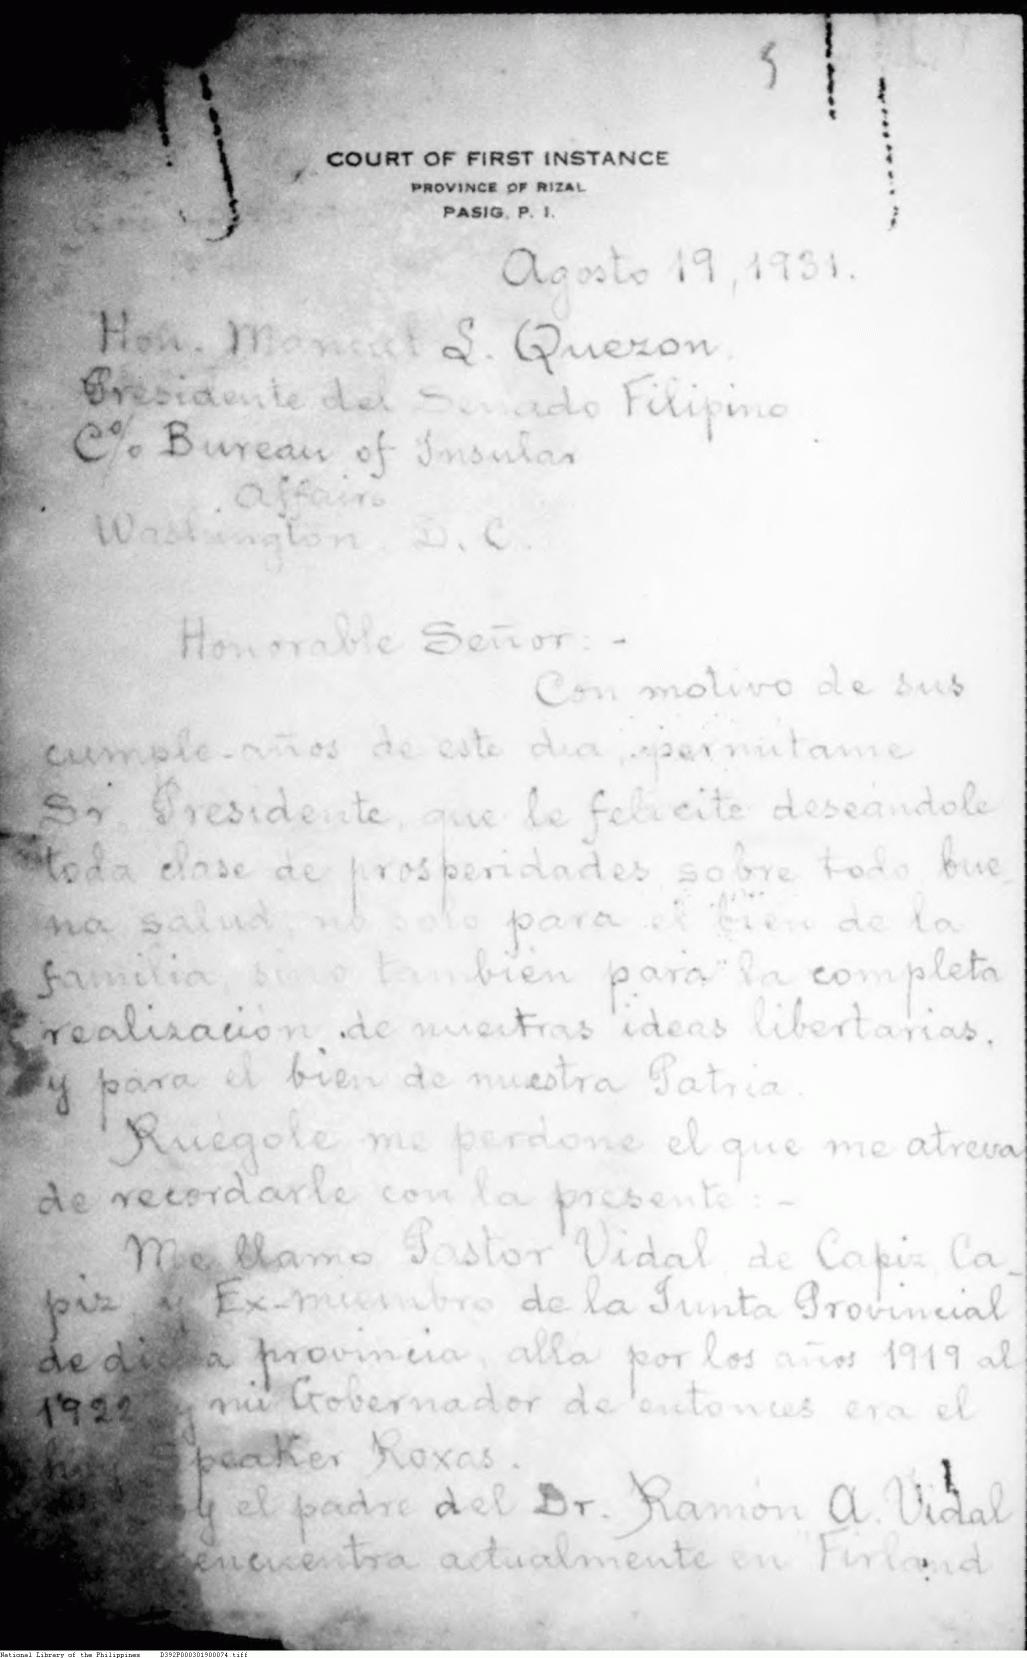 COURT OF FIRST INSTANCE
PROVINCE OF RIZAL
PASIG, P. I.
Agosto 19, 1931.
Hon. Manuel L. Quezon,
Presidente del Senado Filipino
C/o Bureau of Insular
Affairs
Washington, D. C.
Honorable Señor: -
Con motivo de sus
cumple-años de este dia, permítame
Sr. Presidente, que le felicite deseándole
toda clase de prosperidades sobre todo bue-
na salud, no solo para el bien de la
familia, sino tambien para la completa
realización de nuestras ideas libertarias,
y para el bien de nuestra Patria.
Ruégole me perdone el que me atreva
de recordarle con la presente: -
Me llamo Pastor Vidal de Capiz, Ca-
piz, y Ex-miembro de la Junta Provincial
de dicha provincia, allá por los años 1919 al
1922 y mi Gobernador de entonces era el
hoy Speaker Roxas.
y el padre del Dr. Ramón A. Vidal
encuentra actualmente en "Firland
National Library of the Philippines D392P000301900074.tiff